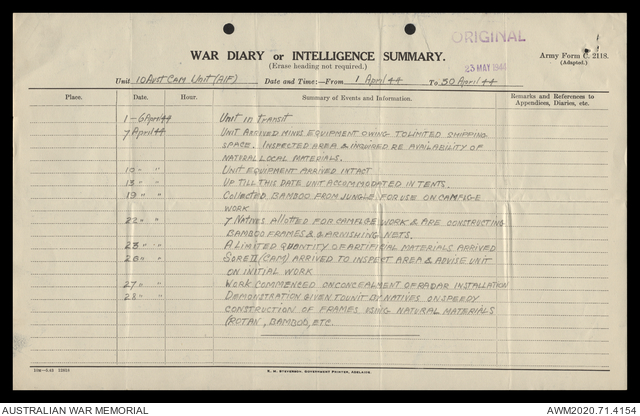 ORIGINAL
WAR DIARY or INTELLIGENCE SUMMARY.
23 MAY 1944
(Erase heading not required.)
Army Form C. 2118.
(Adapted.)
Unit 10 Aust Cam Unit (AIF) Date and Time:—From 1 April 44 To 30 April 44
Place. Date. Hour. Summary of Events and Information. Remarks and References to Appendices, Diaries, etc.
1-6 April 44 Unit in transit
7 April 44 Unit arrived minus equipment owing to limited shipping
space. Inspected area & inquired re availability of
natural local materials.
10 " " Unit equipment arrived intact
13 " " Up till this date unit accommodated in tents.
19 " " Collected bamboo from jungle for use on camflge
work
22 " " 7 Natives allotted for camflge work & are constructing
bamboo frames & garnishing nets.
23 " " A limited quantity of artificial materials arrived
26 " " (Cam) arrived to inspect area & advise unit
on initial work
27 " " Work commenced on concealment of radar installation
28 " " Demonstration given to unit by natives on speedy
construction of frames using natural materials
(rotan, bamboo, etc.
AUSTRALIAN WAR MEMORIAL
AWM2020.71.4154